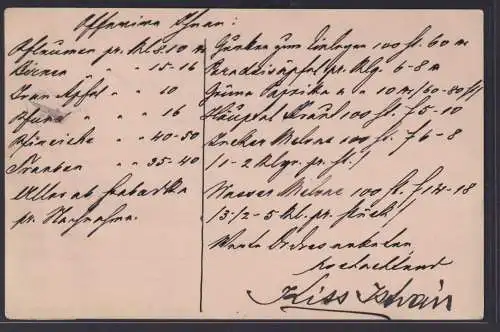 Offeriere Ihnen:
Pflaumen pr. Kl. 8.10 M
Birnen " " 15-16
" Äpfel " 10
" " 16
Pfirsiche " " 40-50
Trauben " " 35-40
Alles ab Szabadka
pr. Nachnahme.
Gurken zum Einlegen 100 St. 60 M
Paradeisäpfel pr. Klg. 6-8 M
Grüne Paprika " " 10 M (60-80 St)
Häuptel Kraut 100 St. f 5-10
Zucker Melone 100 St. f 6-8
/1-2 Klgr. pr. St./
Wasser Melone 100 St. f 14-18
/3 1/2-5 Kl. pr. Stück/
Werte Ordres erbeten
hochachtend
Kiss István